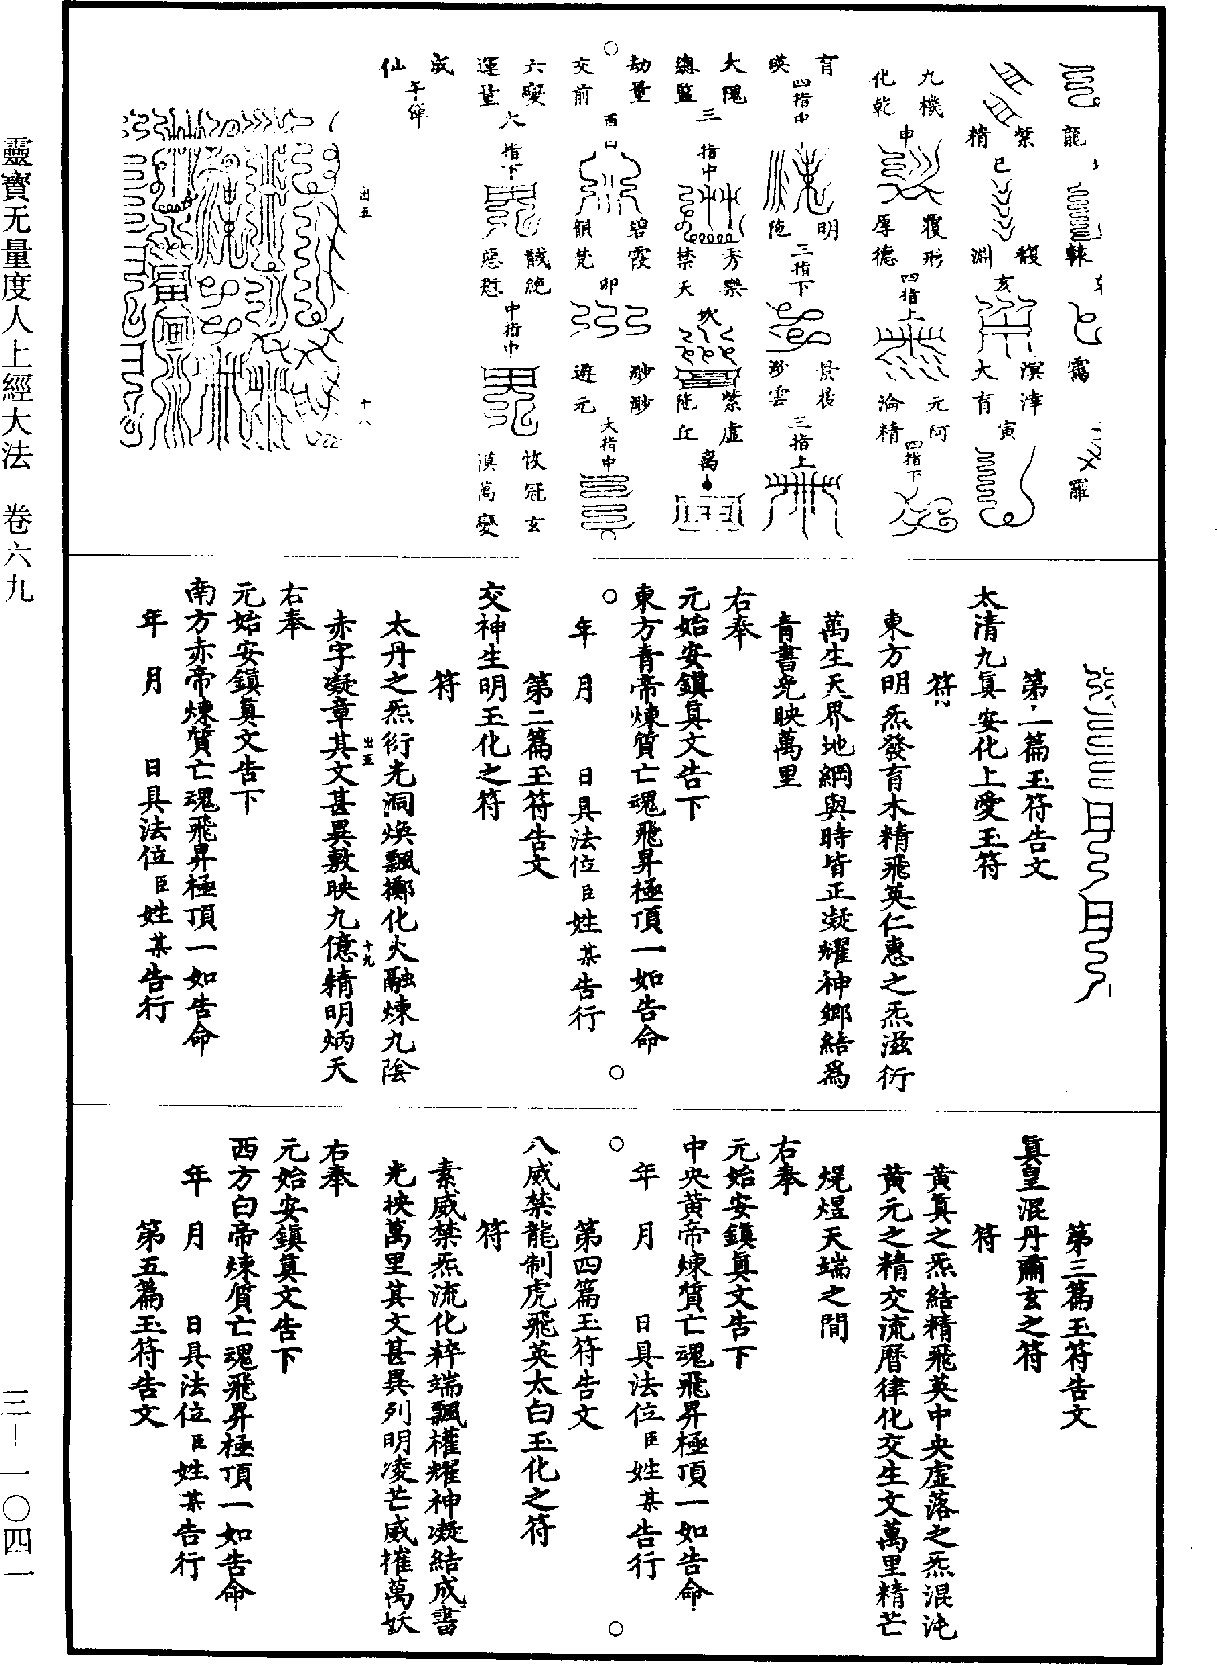 靈寶无量度人上經大法　卷六九
三-一〇四一
龍
紫精
巳
馥淵
亥
溟涬大育
寅
九機化乾
申
覆形厚德
四指上
元阿淪精
四指下
四指中
明
三指下
三指上
大隗總監
三
指中
秀樂禁天
坎
紫虛
丘
離
劫量交前
酉
碧霞
卯
眇眇遊元
大指中
六變運量
六
指下
中指中
成仙
第一篇玉符告文
太清九真安化上愛玉符
符
東方明炁發育木精飛英仁惠之炁滋衍
萬生天界地綱與時皆正凝耀神鄉結爲
青書光映萬里
右奉
元始安鎮真文告下
東方青帝煉質亡魂飛昇極頂一如告命
年　月　日具法位臣姓某告行
第二篇玉符告文
交神生明玉化之符
符
太丹之炁衍光洞煥飄擲化火融煉九陰
赤字凝章其文甚異敷映九億精明炳天
右奉
元始安鎮真文告下
南方赤帝煉質亡魂飛昇極頂一如告命
年　月　日具法位臣姓某告行
第三篇玉符告文
真皇混丹彌玄之符
符
黃真之炁結精飛英中央虛落之炁混沌
黃元之精交流曆律化交生文萬里精芒
焜煜天端之間
右奉
元始安鎮真文告下
中央黃帝煉質亡魂飛昇極頂一如告命
年　月　日具法位臣姓某告行
第四篇玉符告文
八威禁龍制虎飛英太白玉化之符
符
素威禁炁流化粹端飄權耀神凝結成書
光映萬里其文甚異列明凌芒威摧萬妖
右奉
元始安鎮真文告下
西方白帝煉質亡魂飛昇極頂一如告命
年　月　日具法位臣姓某告行
第五篇玉符告文